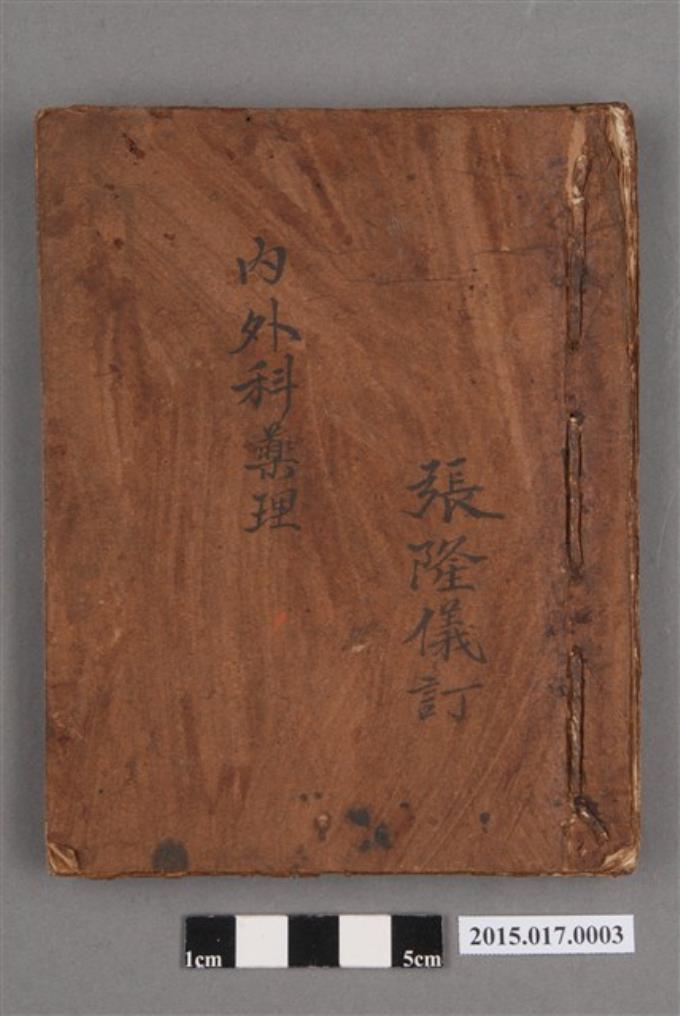 張隆儀訂
內外科藥理
1cm 5cm
2015.017.0003